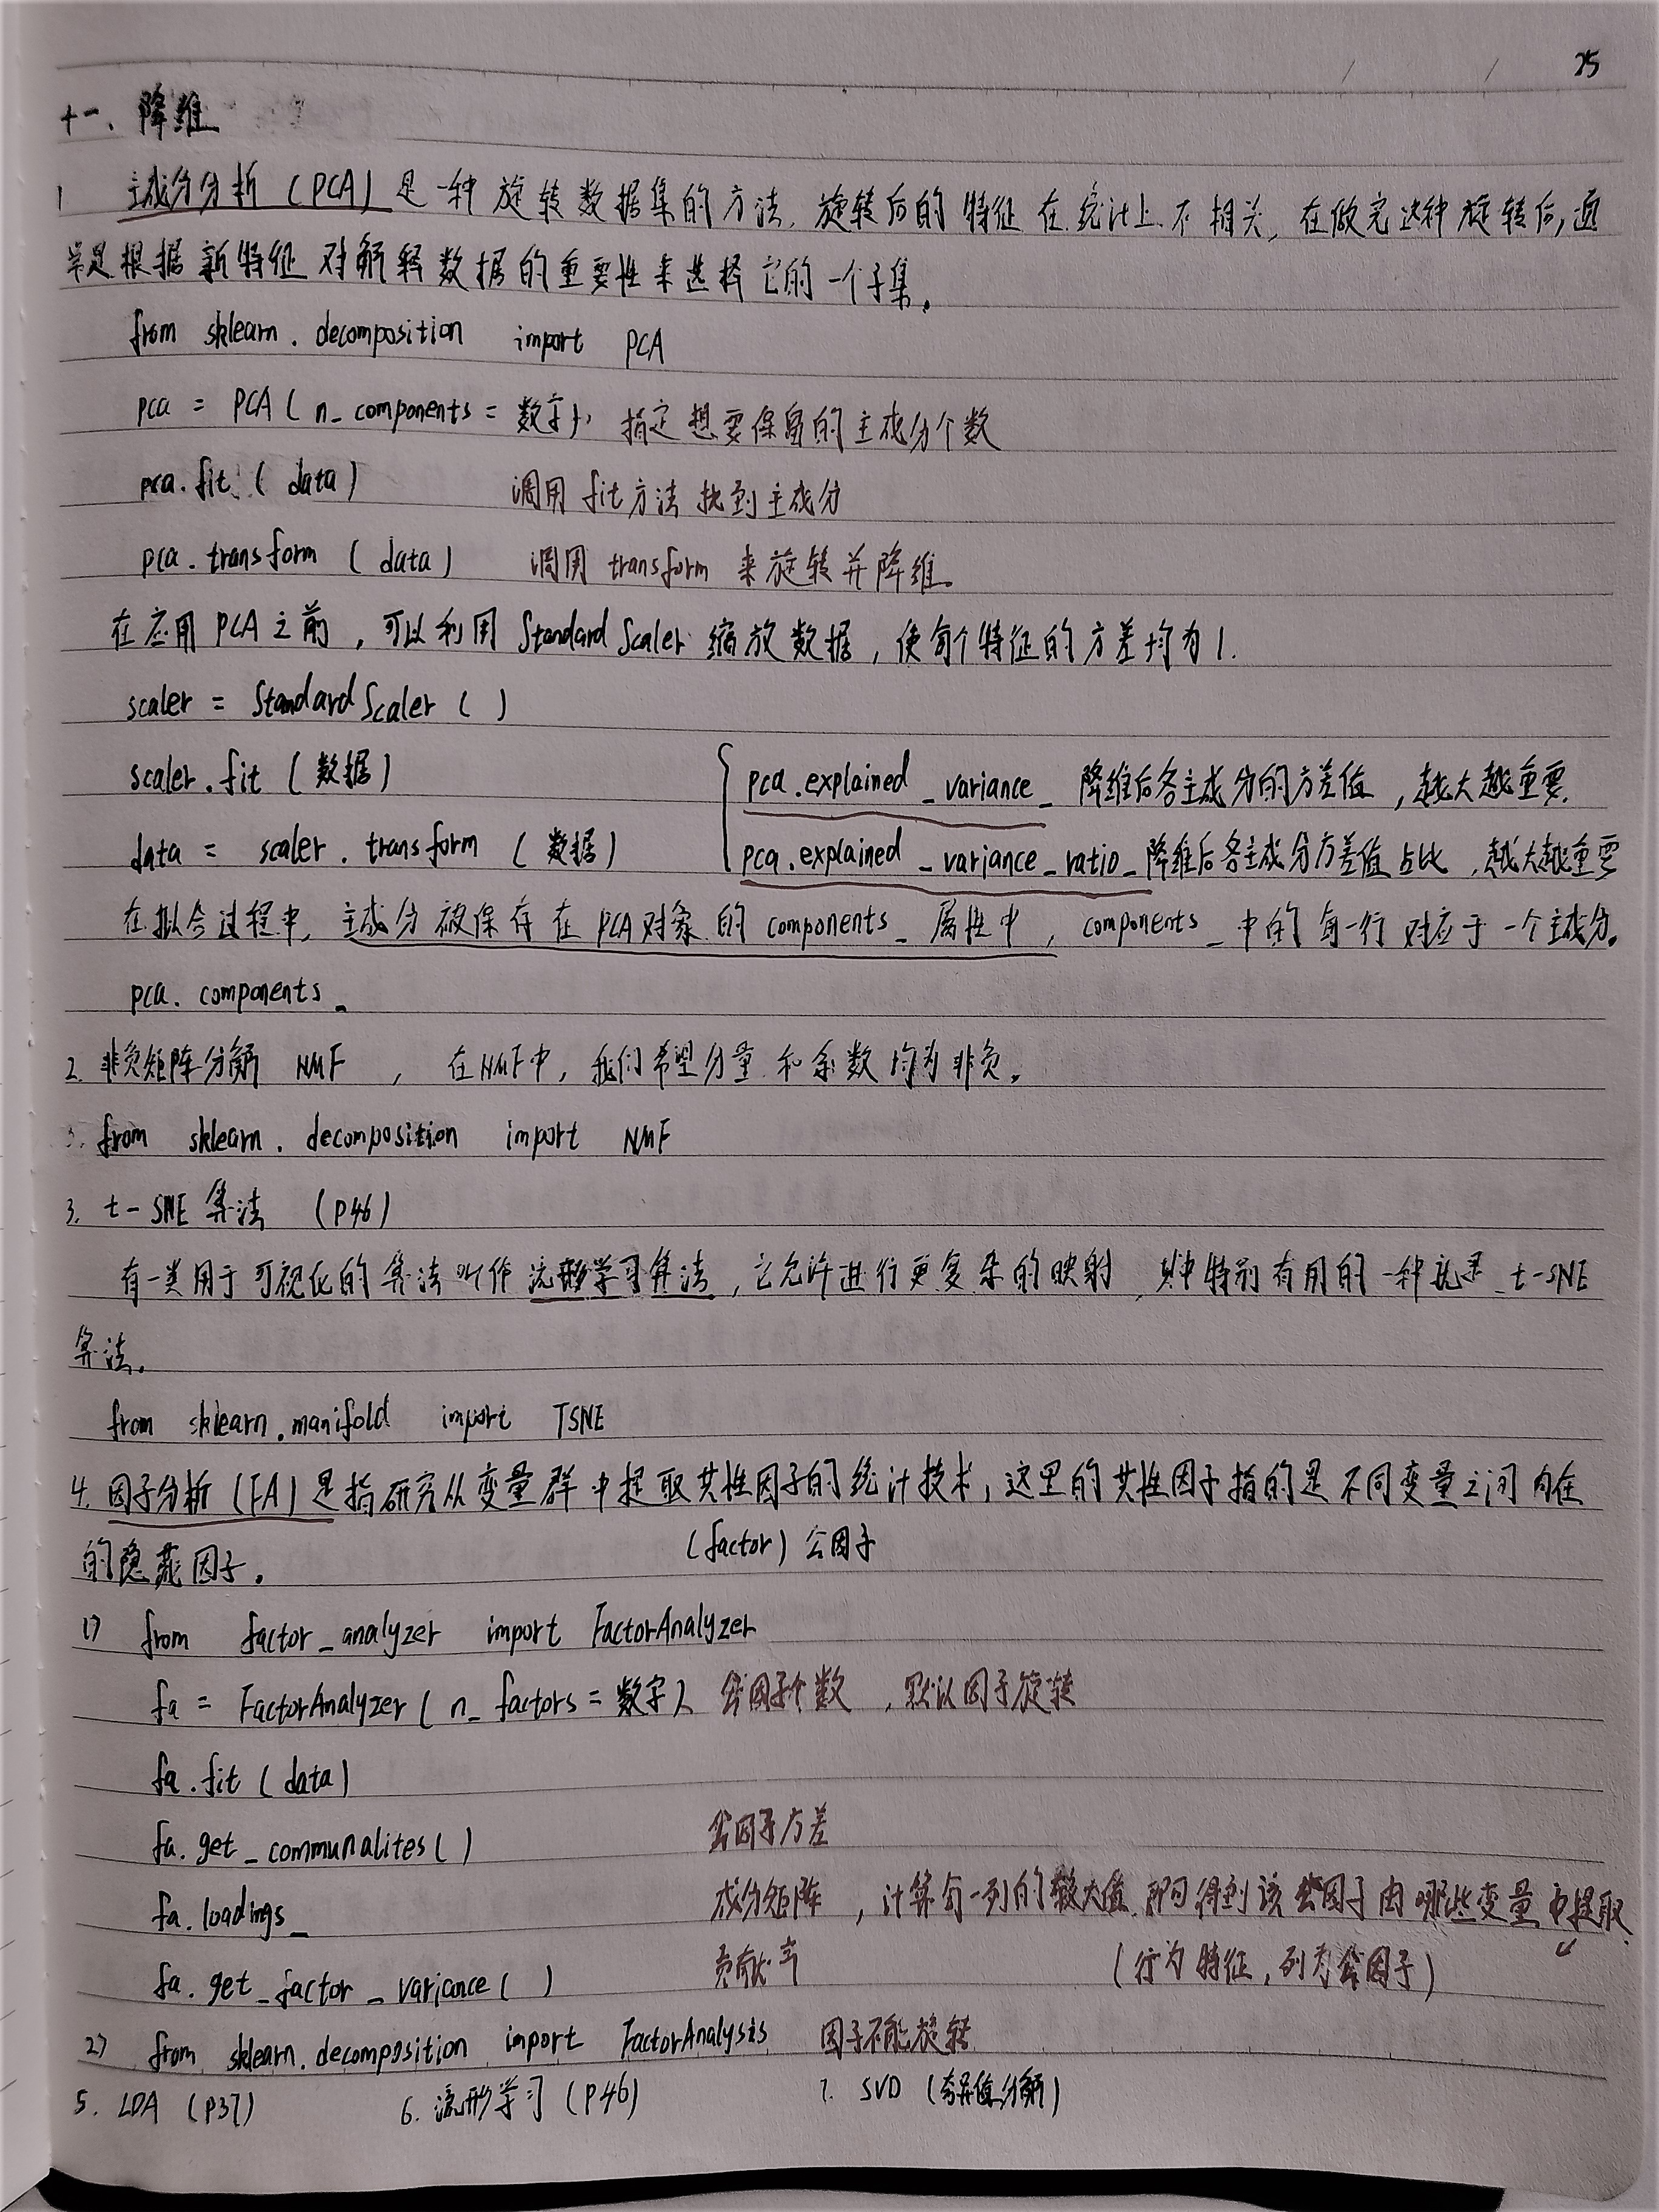 25
十一、降维
1 主成分分析（PCA）是一种旋转数据集的方法，旋转后的特征在统计上不相关，在做完这种旋转后，通
常是根据新特征对解释数据的重要性来选择它的一个子集。
from sklearn.decomposition import PCA
pca = PCA(n_components=数字) 指定想要保留的主成分个数
pca.fit(data) 调用fit方法找到主成分
pca.transform(data) 调用transform来旋转并降维。
在应用PCA之前，可以利用StandardScaler缩放数据，使每个特征的方差均为1.
scaler = StandardScaler()
scaler.fit(数据) pca.explained_variance_ 降维后各主成分的方差值，越大越重要.
data = scaler.transform(数据) pca.explained_variance_ratio_ 降维后各主成分方差值占比，越大越重要
在拟合过程中，主成分被保存在PCA对象的components_属性中，components_中的每一行对应于一个主成分。
pca.components_
2. 非负矩阵分解 NMF ，在NMF中，我们希望分量和系数均为非负。
3. from sklearn.decomposition import NMF
3. t-SNE算法 (P46)
有一类用于可视化的算法叫作流形学习算法，它允许进行更复杂的映射，其中特别有用的一种就是t-SNE
算法。
from sklearn.manifold import TSNE
4. 因子分析（FA）是指研究从变量群中提取共性因子的统计技术，这里的共性因子指的是不同变量之间内在
的隐藏因子。 (factor) 公因子
1) from factor_analyzer import FactorAnalyzer
fa = FactorAnalyzer(n_factors=数字) 公因子个数，默认因子旋转
fa.fit(data)
fa.get_communalites() 公因子方差
fa.loadings_ 成分矩阵，计算每一列的最大值，即可得到该公因子由哪些变量中提取.
fa.get_factor_variance() 贡献率 (行为特征，列为公因子)
2) from sklearn.decomposition import FactorAnalysis 因子不能旋转
5. LDA (P37) 6. 流形学习 (P46) 7. SVD (奇异值分解)